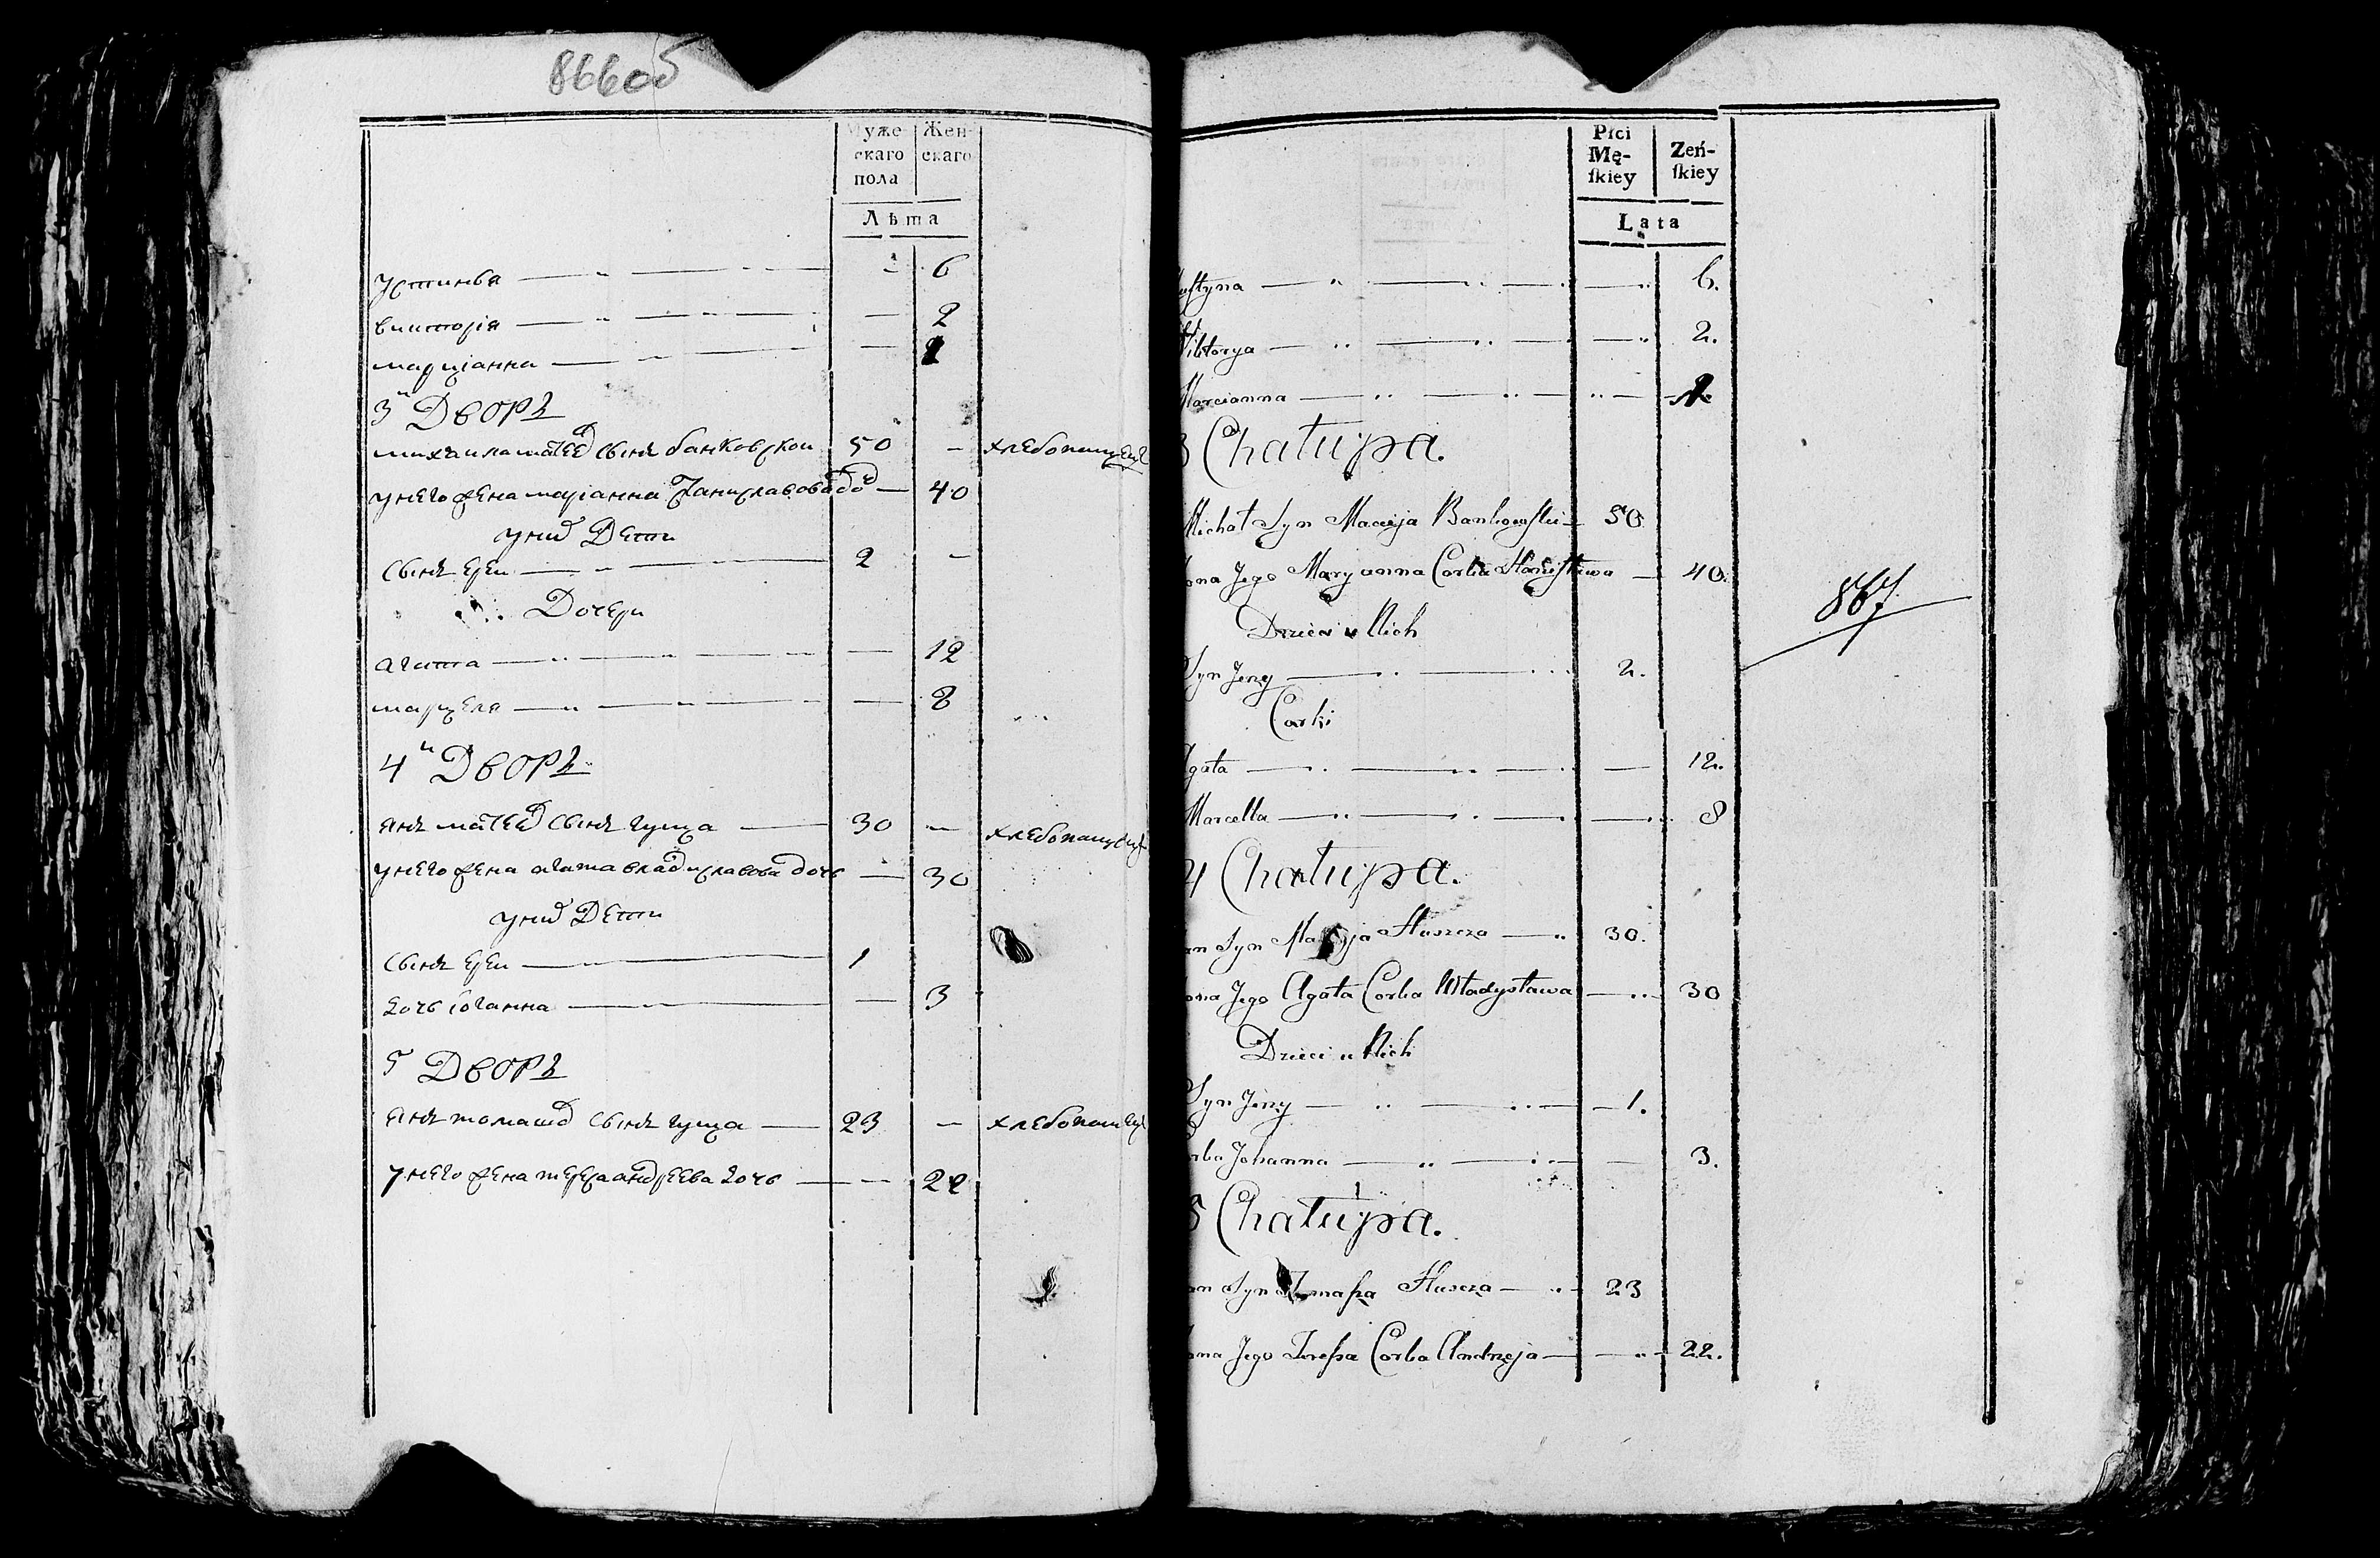 866об
Муже
скаго
пола
Жен-
скаго
Лѣта
Устинья — 6
викторія — 2
марціанна — 1
3й Дворъ
михаила матѣеѵ сынъ банковской 50 — хлебопашецъ
унего жена маріанна Станиславова до — 40
уних Дети
сынъ Ерей — 2 —
Дочери
агата — 12
марцеля — 8
4й Дворъ
янъ матеев сынъ гуща — 30 — хлебопашец
унего жена агата владиславова дочь — 30
уних Дети
сынъ Ерей — 1
дочь іоганна — 3
5 Дворъ
янъ томашов сынъ гуща — 23 — хлебопашец
Унего жена тереза андреева дочь — 22
Płci
Mę-
ſkiey
Zeń-
ſkiey
Lata
uſtyna — 6.
Wiktorya — 2.
Marcianna — 1.
3 Chałupa.
Michał Syn Macieja Bankowſki — 50
ona Jego Maryanna Corka Stanisława — 40.
Dzieci u Nich
Syn Jerzy — 2.
Corki
Agata — 12.
Marcella — 8
4 Chałupa.
an Syn Macieja Huszcza — 30.
ona Jego Agata Corka Władysława — 30
867
Dzieci u Nich
Syn Jerzy — 1.
orka Johanna — 3.
5 Chałupa.
an Syn Tomaſza Huscza — 23
ona Jego Tereſsa Corka Andrzeja — 22.